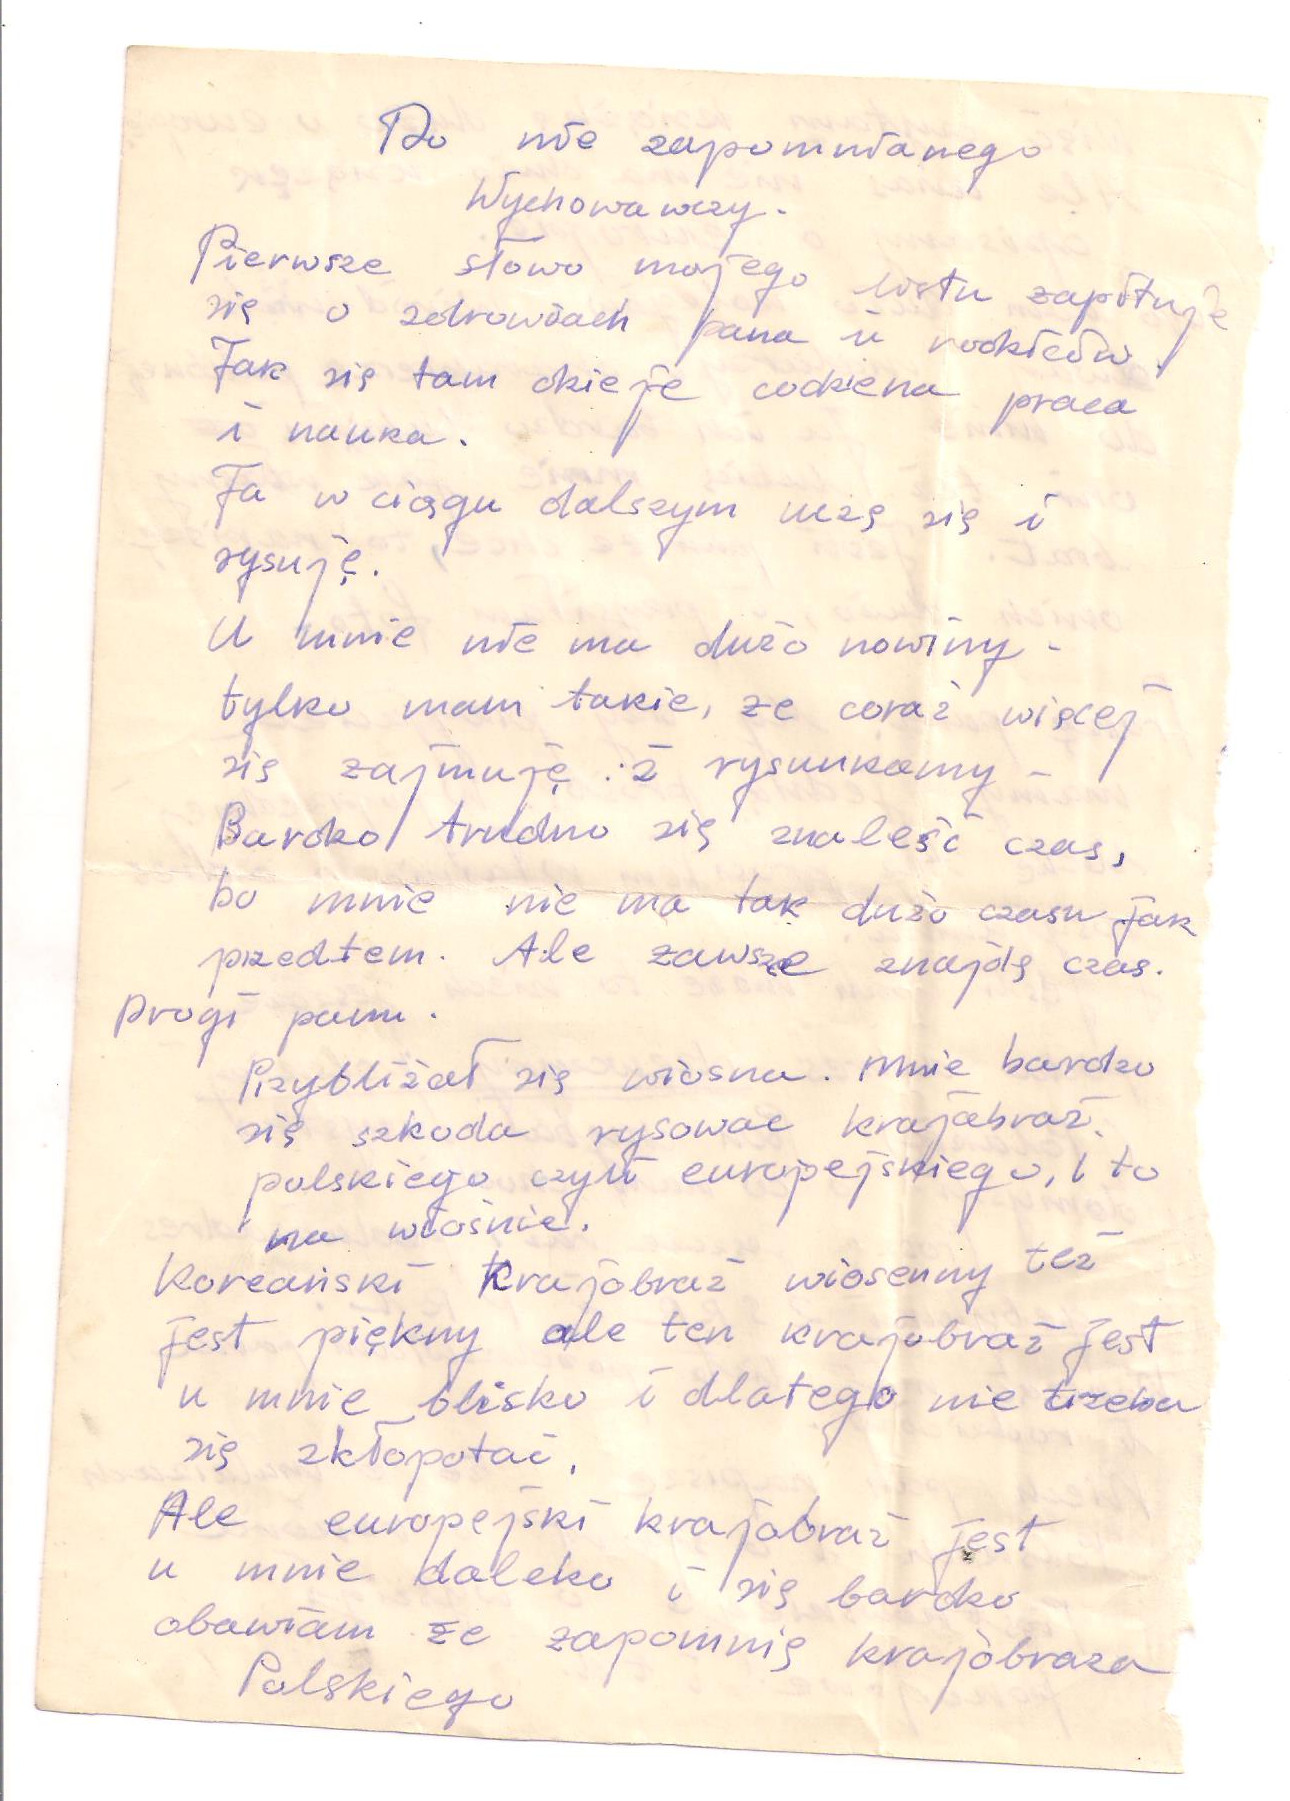 Do nie zapomnianego
Wychowawczy.
Pierwsze słowo mojego listu zapituje
się o zdrowiach pana i rodziców.
Jak się tam dzieje codziena praca
i nauka.
Ja w ciągu dalszym uczę się i
rysuję.
U mnie nie ma dużo nowiny -
tylko mam takie, ze coraż więcej
się zajmuję z rysunkamy -
Bardzo trudno się znaleść czas,
bo mnie nie ma tak dużo czasu jak
przedtem. Ale zawsze znajdę czas.
Drogi panu.
Przybliżał się wiosna. Mnie bardzo
się szkoda rysowac krajabraż
polskiego czyli europejskiego, i to
na wiośnie.
Koreański krajobraż wiosenny też
jest piękny ale ten krajobraż jest
u mnie blisko i dlatego nie trzeba
się zkłopotać.
Ale europejski krajobraż jest
u mnie daleko i się bardzo
obawiam ze zapomnię krajobraza
Polskiego